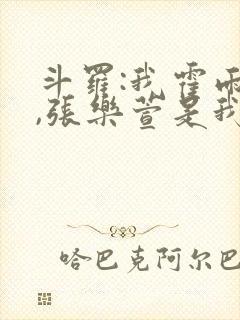 斗羅:我霍雨
,張樂萱是我
哈巴克阿尔巴